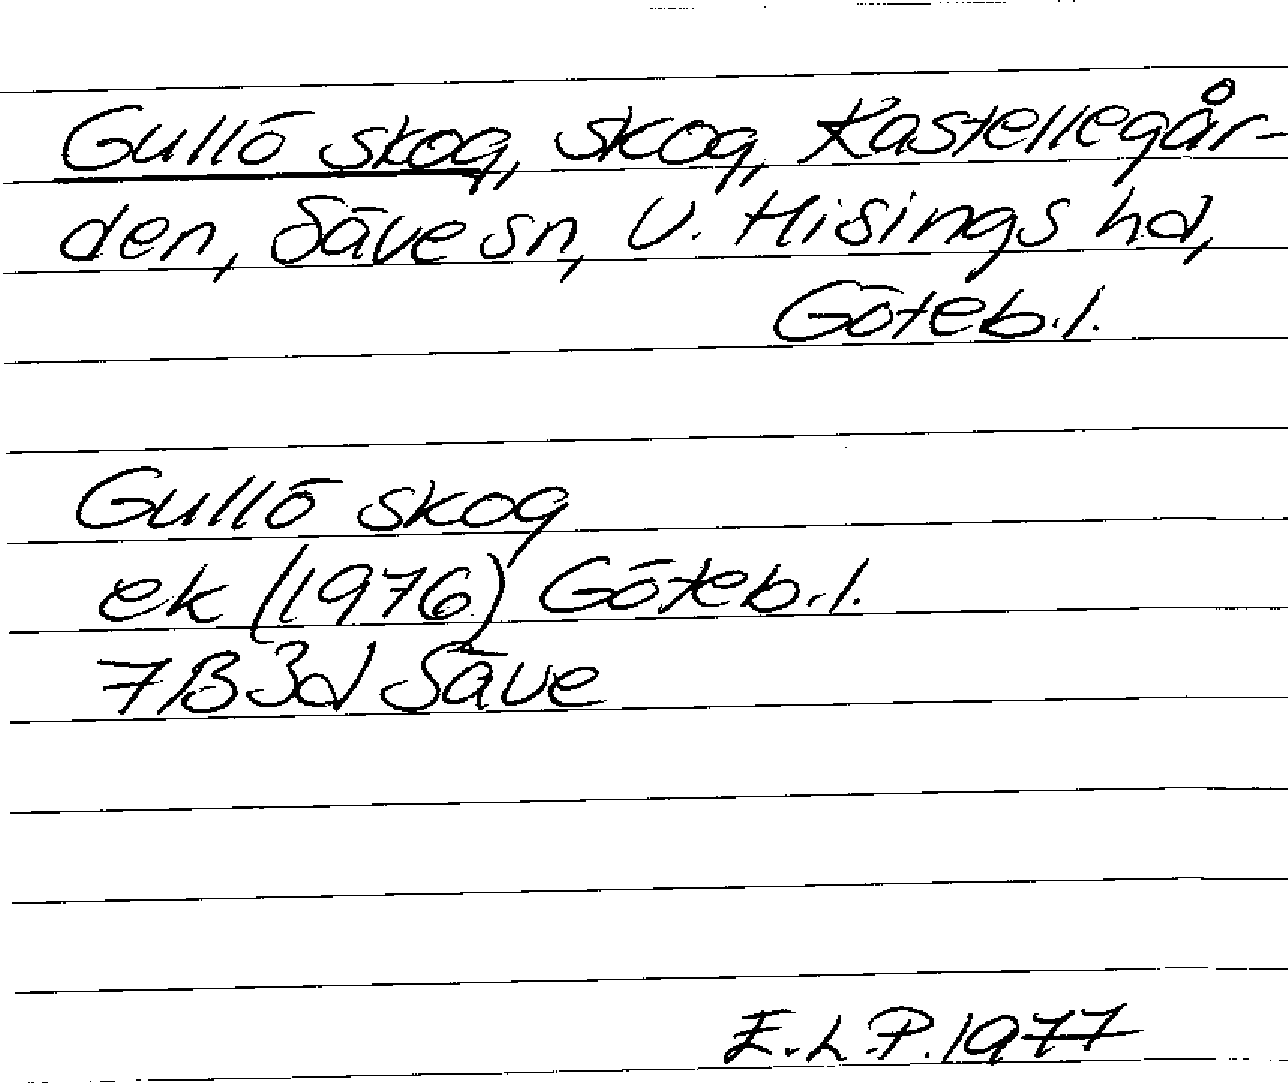 Gullö skog, skog, Kastellegår-
den, Säve sn, V. Hisings hd,
Göteb.l.
Gullö skog
ek (1976) Göteb.l.
7B3d Säve
E.L.P. 1977